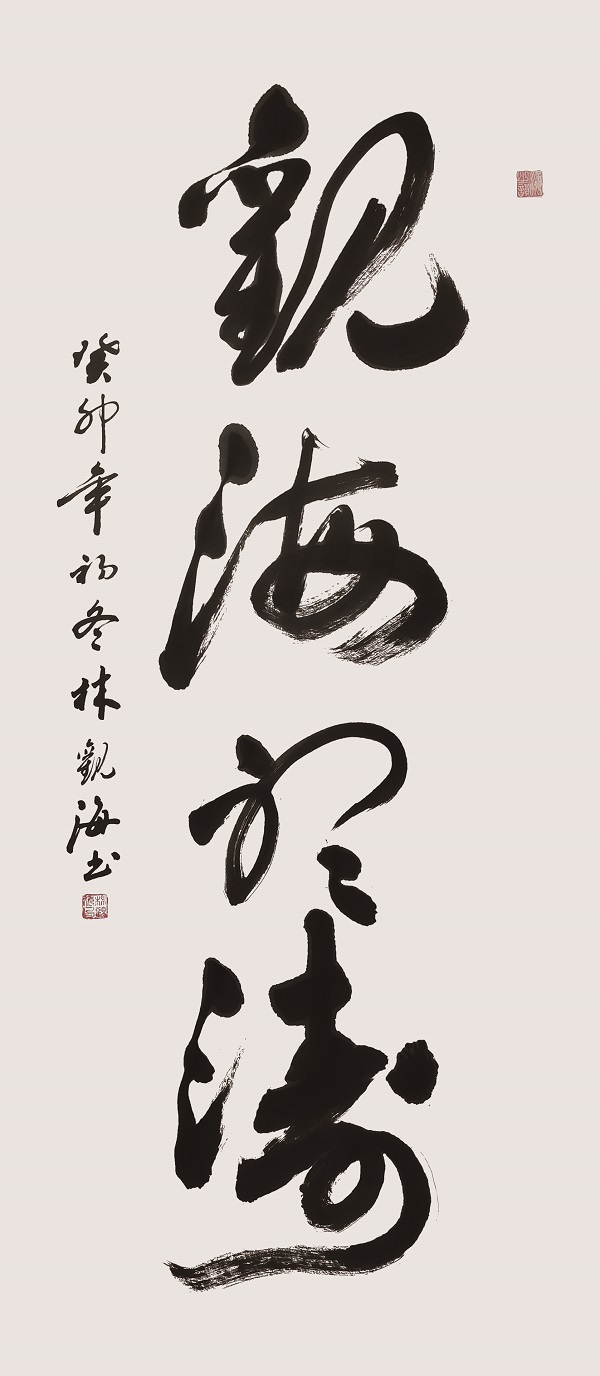 觀海聽濤
癸卯年初冬林觀海书